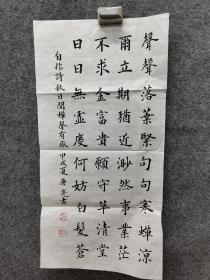 聲聲落葉緊句句寒蟬涼
爾立期猶近渺然事業茫
不求金富貴願守草清堂
日日無虛度何妨白髮蒼
自作詩秋日聞蟬聲有感 甲戌夏